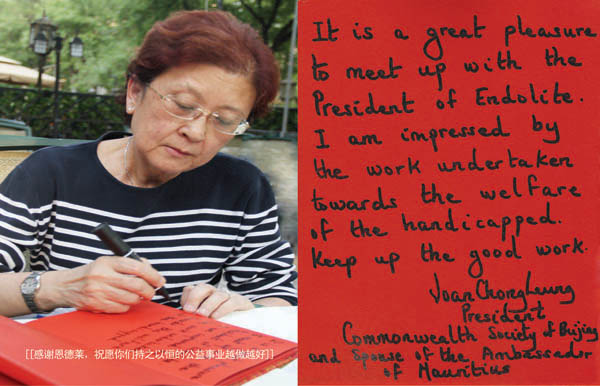 [[感谢恩德莱，祝愿你们持之以恒的公益事业越做越好]]
It is a great pleasure
to meet up with the
President of Endolite.
I am impressed by
the work undertaken
towards the welfare
of the handicapped.
Keep up the good work.
Joan Chongleung
President
Commonwealth Society of Beijing
and Spouse of the Ambassador
of Mauritius